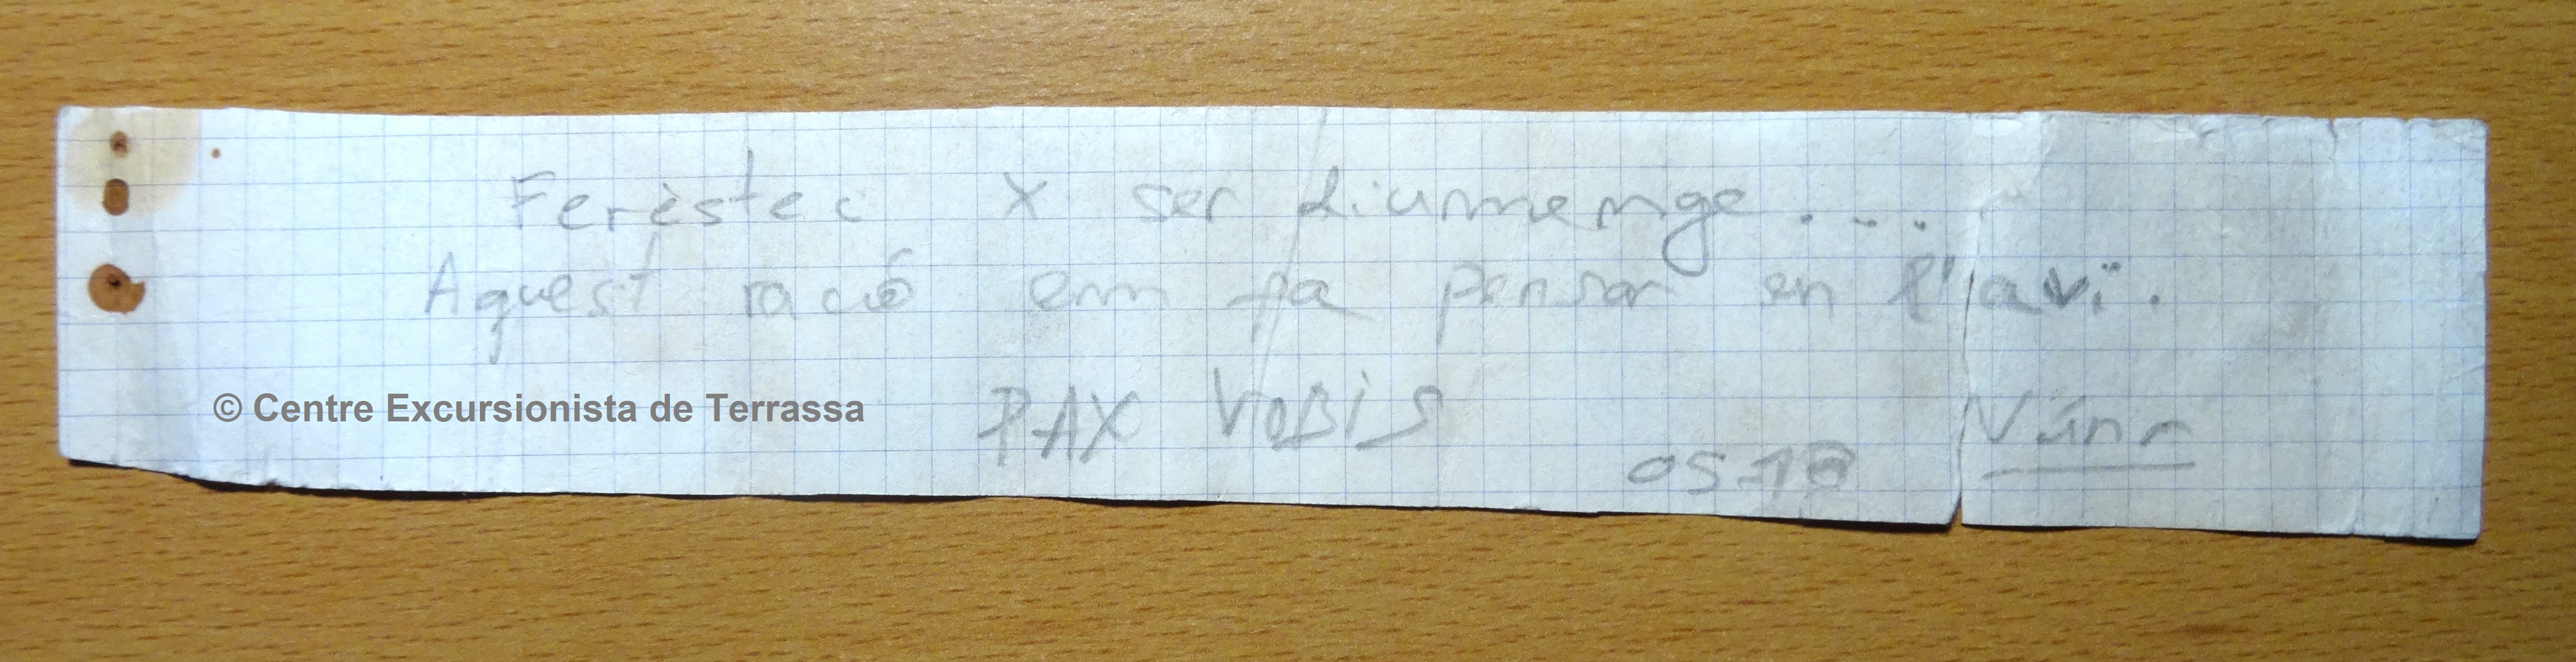 Ferèstec x ser diumenge...
Aquest racó em fa pensar en l'avi.
PAX VOBIS
05-18
© Centre Excursionista de Terrassa